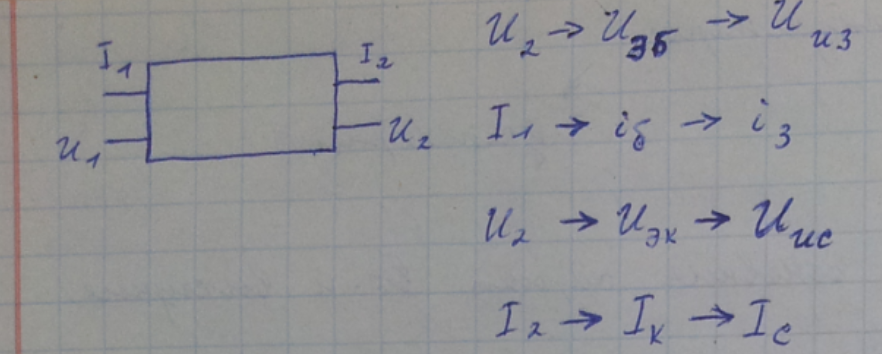 I₁ I₂
U₁ U₂
U₂ → Uэб → Uиз
I₁ → iб → iз
U₂ → Uэк → Uис
I₂ → Iк → Iс